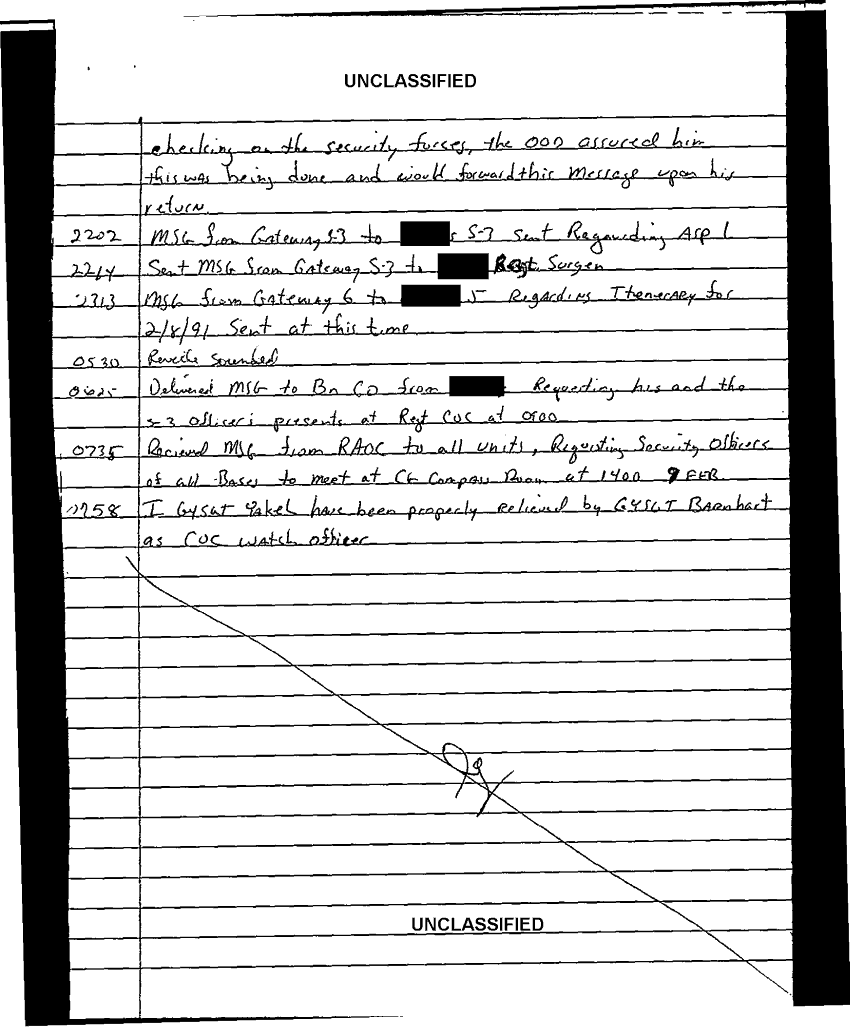 UNCLASSIFIED
checking on the security forces, the OOD assured him
this was being done and would forward this message upon his
return.
2202 MSG from Gateway S-3 to S-3 sent Regarding ASP 1
2214 Sent MSG from Gateway S-3 to Regt. Surgen
2313 MSG from Gateway 6 to 5 Regarding Itenerary for
2/8/91 Sent at this time
0530 Reveile Sounded
Delivered MSG to Bn CO from Requesting his and the
S-3 officer's presents at Regt COC at 0900
0735 Recieved MSG from RAOC to all units, Requesting Security Officers
of all Bases to meet at CE Compass Room at 1400 9 FEB
0758 I GySgt Yakel have been properly relieved by GYSGT Barnhart
as COC watch officer
UNCLASSIFIED